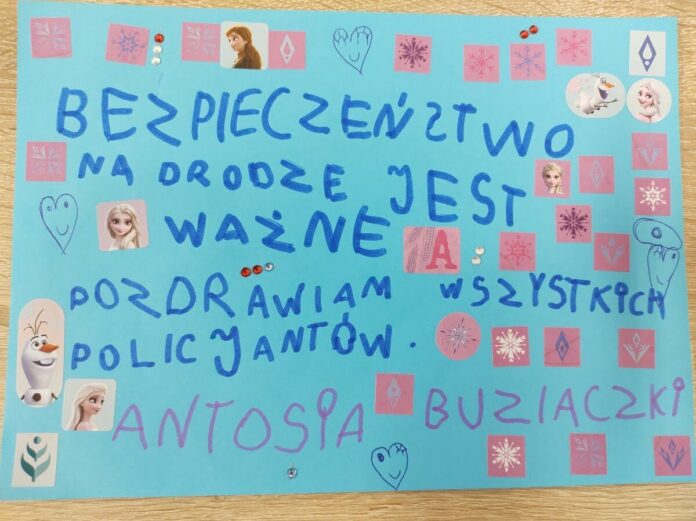 BEZPIECZEŃSTWO
NA DRODZE JEST
WAŻNE
A
POZDRAWIAM WSZYSTKICH
POLICJANTÓW.
ANTOSIA BUZIACZKI